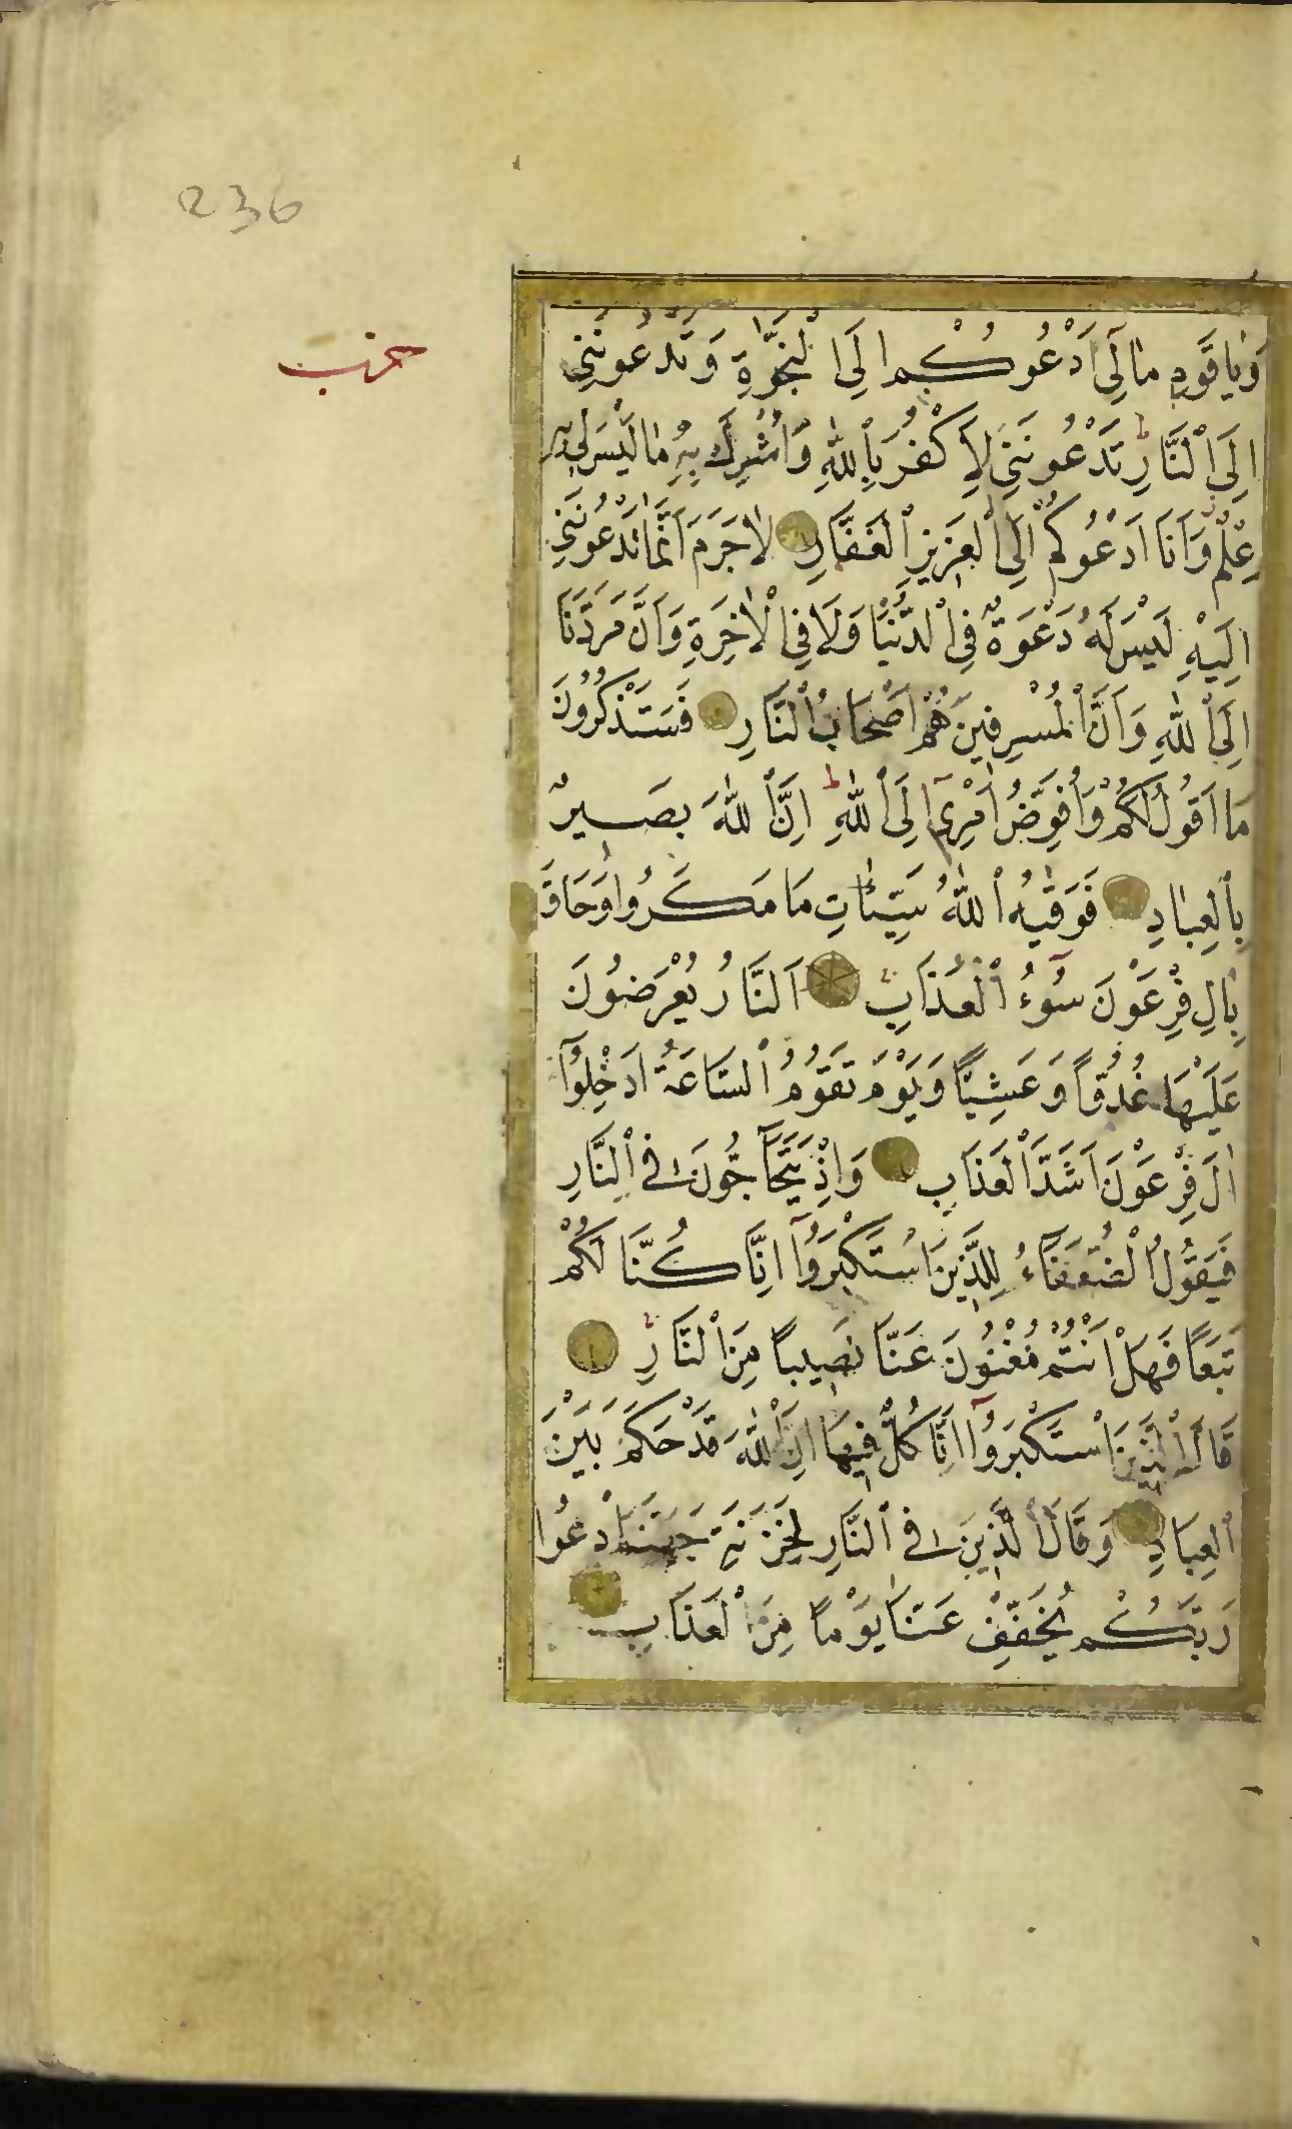 236
حزب
وَيَا قَوْمِ مَالِىٓ اَدْعُوكُمْ اِلَى النَّجٰوةِ وَتَدْعُونَنِى
اِلَى النَّارِ تَدْعُونَنِى لِاَكْفُرَ بِاللّٰهِ وَاُشْرِكَ بِهِ مَا لَيْسَ لِى بِهِ
عِلْمٌ وَاَنَا اَدْعُوكُمْ اِلَى الْعَزِيزِ الْغَفَّارِ لَا جَرَمَ اَنَّمَا تَدْعُونَنِى
اِلَيْهِ لَيْسَ لَهُ دَعْوَةٌ فِى الدُّنْيَا وَلَا فِى الْاٰخِرَةِ وَاَنَّ مَرَدَّنَا
اِلَى اللّٰهِ وَاَنَّ الْمُسْرِفِينَ هُمْ اَصْحَابُ النَّارِ فَسَتَذْكُرُونَ
مَا اَقُولُ لَكُمْ وَاُفَوِّضُ اَمْرِىٓ اِلَى اللّٰهِ اِنَّ اللّٰهَ بَصِيرٌ
بِالْعِبَادِ فَوَقٰيهُ اللّٰهُ سَيِّئَاتِ مَا مَكَرُوا وَحَاقَ
بِاٰلِ فِرْعَوْنَ سُوٓءُ الْعَذَابِ اَلنَّارُ يُعْرَضُونَ
عَلَيْهَا غُدُوًّا وَعَشِيًّا وَيَوْمَ تَقُومُ السَّاعَةُ اَدْخِلُوٓا
اٰلَ فِرْعَوْنَ اَشَدَّ الْعَذَابِ وَاِذْ يَتَحَآجُّونَ فِى النَّارِ
فَيَقُولُ الضُّعَفٰٓاءُ لِلَّذِينَ اسْتَكْبَرُوٓا اِنَّا كُنَّا لَكُمْ
تَبَعًا فَهَلْ اَنْتُمْ مُغْنُونَ عَنَّا نَصِيبًا مِنَ النَّارِ
قَالَ الَّذِينَ اسْتَكْبَرُوٓا اِنَّا كُلٌّ فِيهَا اِنَّ اللّٰهَ قَدْ حَكَمَ بَيْنَ
الْعِبَادِ وَقَالَ الَّذِينَ فِى النَّارِ لِخَزَنَةِ جَهَنَّمَ ادْعُوا
رَبَّكُمْ يُخَفِّفْ عَنَّا يَوْمًا مِنَ الْعَذَابِ